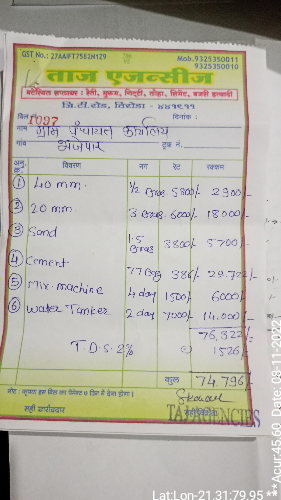 GST No.: 27AAIFT7582N129
Mob. 9325350011
9325350010
ताज एजन्सीज
बिल 1097 दिनांक :
नाम ग्राम पंचायत कार्यालय
गांव भजेपार ट्रक नं.
अनु. क्र. विवरण नग रेट रक्कम
1 40 mm. 1/2 Bras 5800/- 2900/-
2 20 mm. 3 Bras 6000/- 18000/-
3 Sand 1.5 Bras 3800/- 5700/-
4 Cement 77 Bag 386/- 29.722/-
5 Mix. machine 4 day 1500/- 6000/-
6 Water Tanker 2 day 7000/- 14.000/-
76,322/-
T D S 2% 1526/-
कुल 74.796/-
सही खरीददार
TAJ AGENCIES
Lat:Lon-21.31:79.95 ** Acur:45.60 Date: 08-11-2022